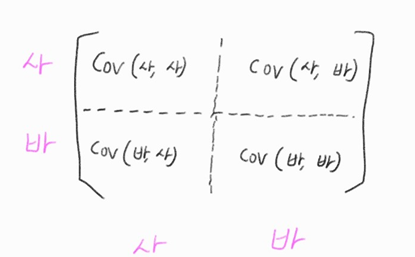 사 Cov (사, 사) Cov (사, 바)
바 Cov (바, 사) Cov (바, 바)
사 바